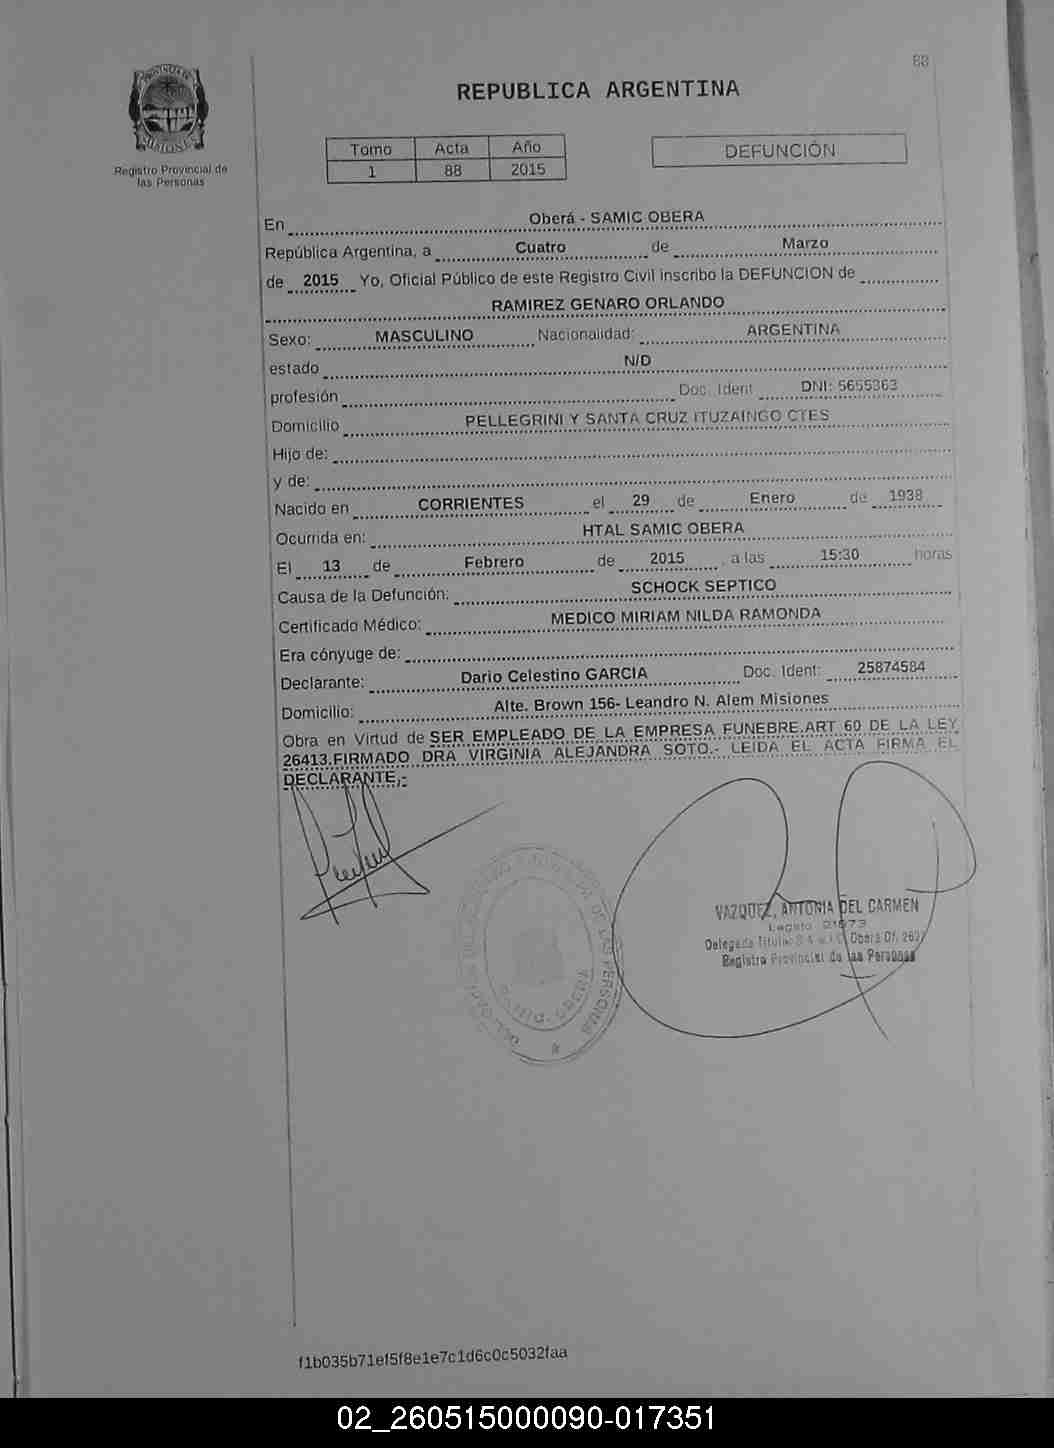 88
REPUBLICA ARGENTINA
PROVINCIA DE
MISIONES
Registro Provincial de
las Personas
Tomo Acta Año
1 88 2015
DEFUNCIÓN
En Oberá - SAMIC OBERA
República Argentina, a Cuatro de Marzo
de 2015 Yo, Oficial Público de este Registro Civil inscribo la DEFUNCION de
RAMIREZ GENARO ORLANDO
Sexo: MASCULINO Nacionalidad: ARGENTINA
estado N/D
profesión Doc. Ident DNI: 5655363
Domicilio PELLEGRINI Y SANTA CRUZ ITUZAINGO CTES
Hijo de:
y de:
Nacido en CORRIENTES el 29 de Enero de 1938
Ocurrida en: HTAL SAMIC OBERA
El 13 de Febrero de 2015, a las 15:30 horas
Causa de la Defunción: SCHOCK SEPTICO
Certificado Médico: MEDICO MIRIAM NILDA RAMONDA
Era cónyuge de:
Declarante: Dario Celestino GARCIA Doc. Ident: 25874584
Domicilio: Alte. Brown 156- Leandro N. Alem Misiones
Obra en Virtud de SER EMPLEADO DE LA EMPRESA FUNEBRE.ART 60 DE LA LEY
26413.FIRMADO DRA VIRGINIA ALEJANDRA SOTO.- LEIDA EL ACTA FIRMA EL
DECLARANTE,-
DE LAS PERSONAS
VAZQUEZ, ANTONIA DEL CARMEN
Legajo
Delegada Titular Oberá Of.
Registro Provincial de las Personas
f1b035b71ef5f8e1e7c1d6c0c5032faa
02_260515000090-017351